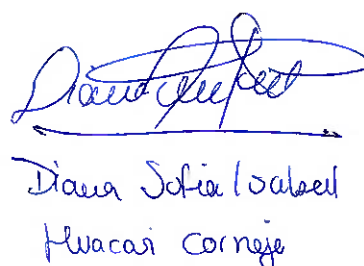 Diana
Diana Sofia Isabel
Huacasi Cornejo